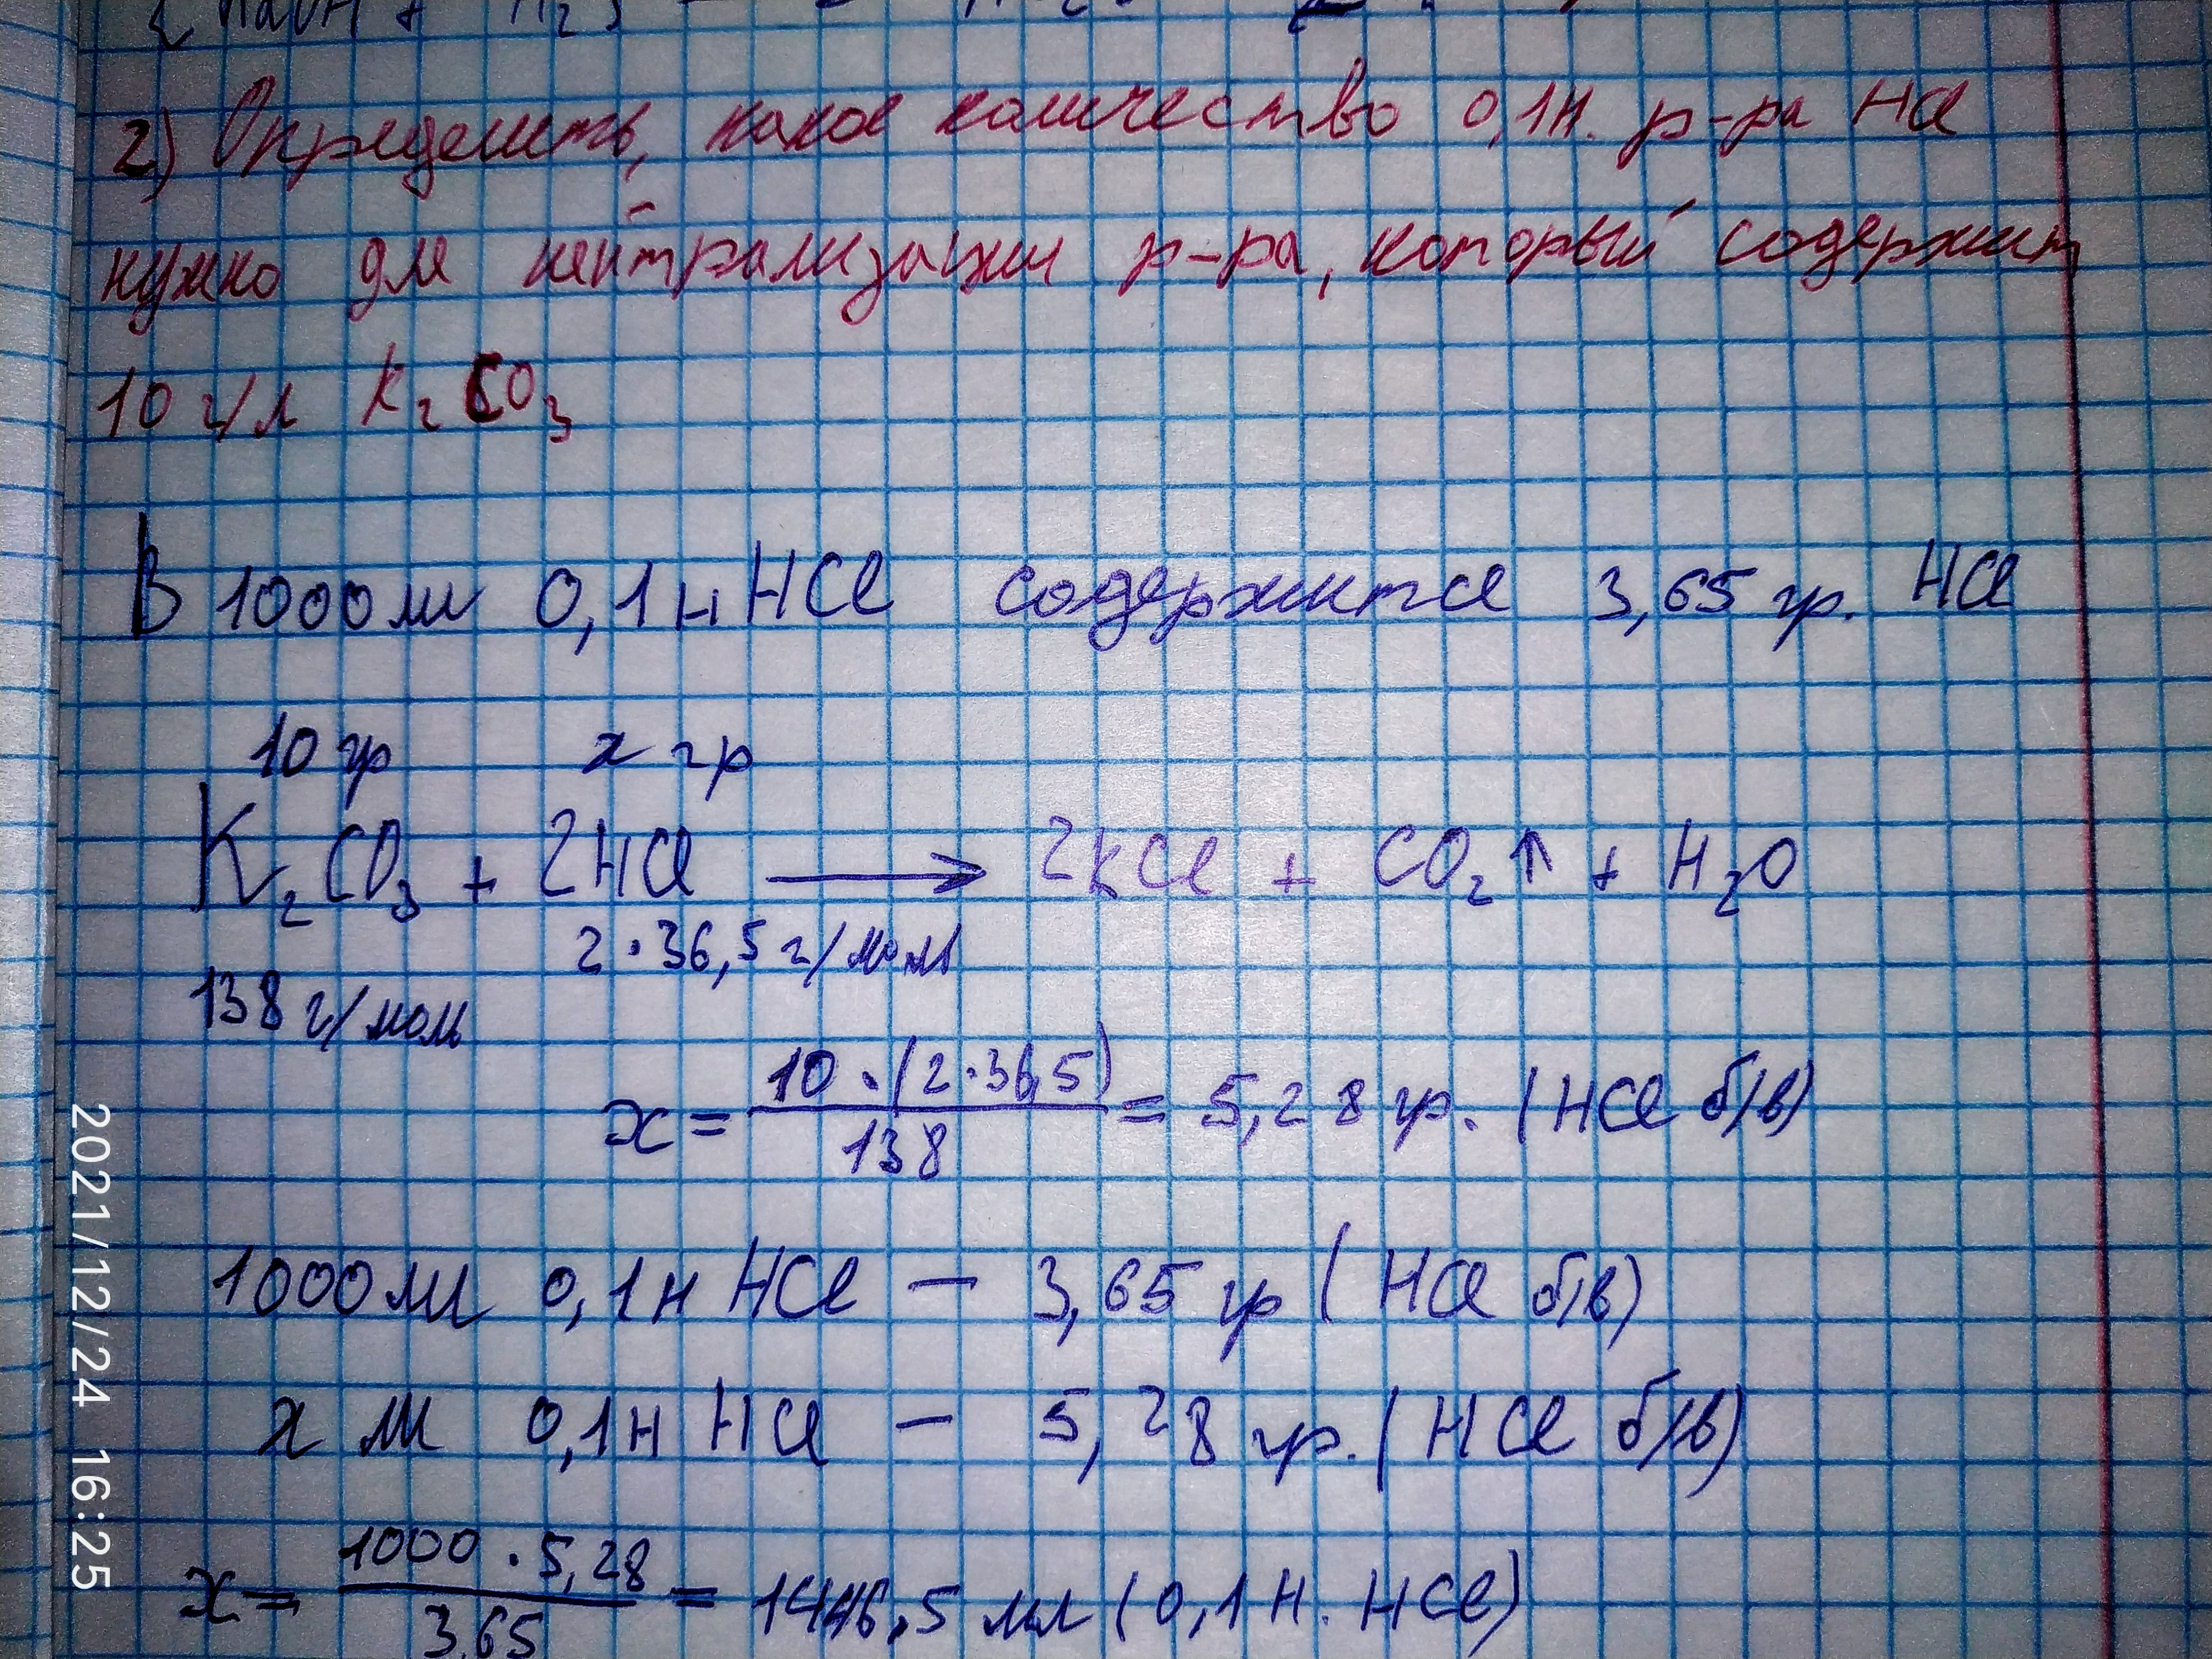 2) Определить, какое количество 0,1н. р-ра HCl
нужно для нейтрализации р-ра, который содержит
10 г/л K₂CO₃
В 1000 мл 0,1н HCl содержится 3,65 гр. HCl
10 гр x гр
K₂CO₃ + 2HCl ⟶ 2KCl + CO₂↑ + H₂O
2·36,5 г/моль
138 г/моль
x = 10·(2·36,5) / 138 = 5,28 гр. (HCl б/в)
1000 мл 0,1н HCl — 3,65 гр (HCl б/в)
x мл 0,1н HCl — 5,28 гр. (HCl б/в)
x = 1000·5,28 / 3,65 = 1446,5 мл (0,1н. HCl)
2021/12/24 16:25